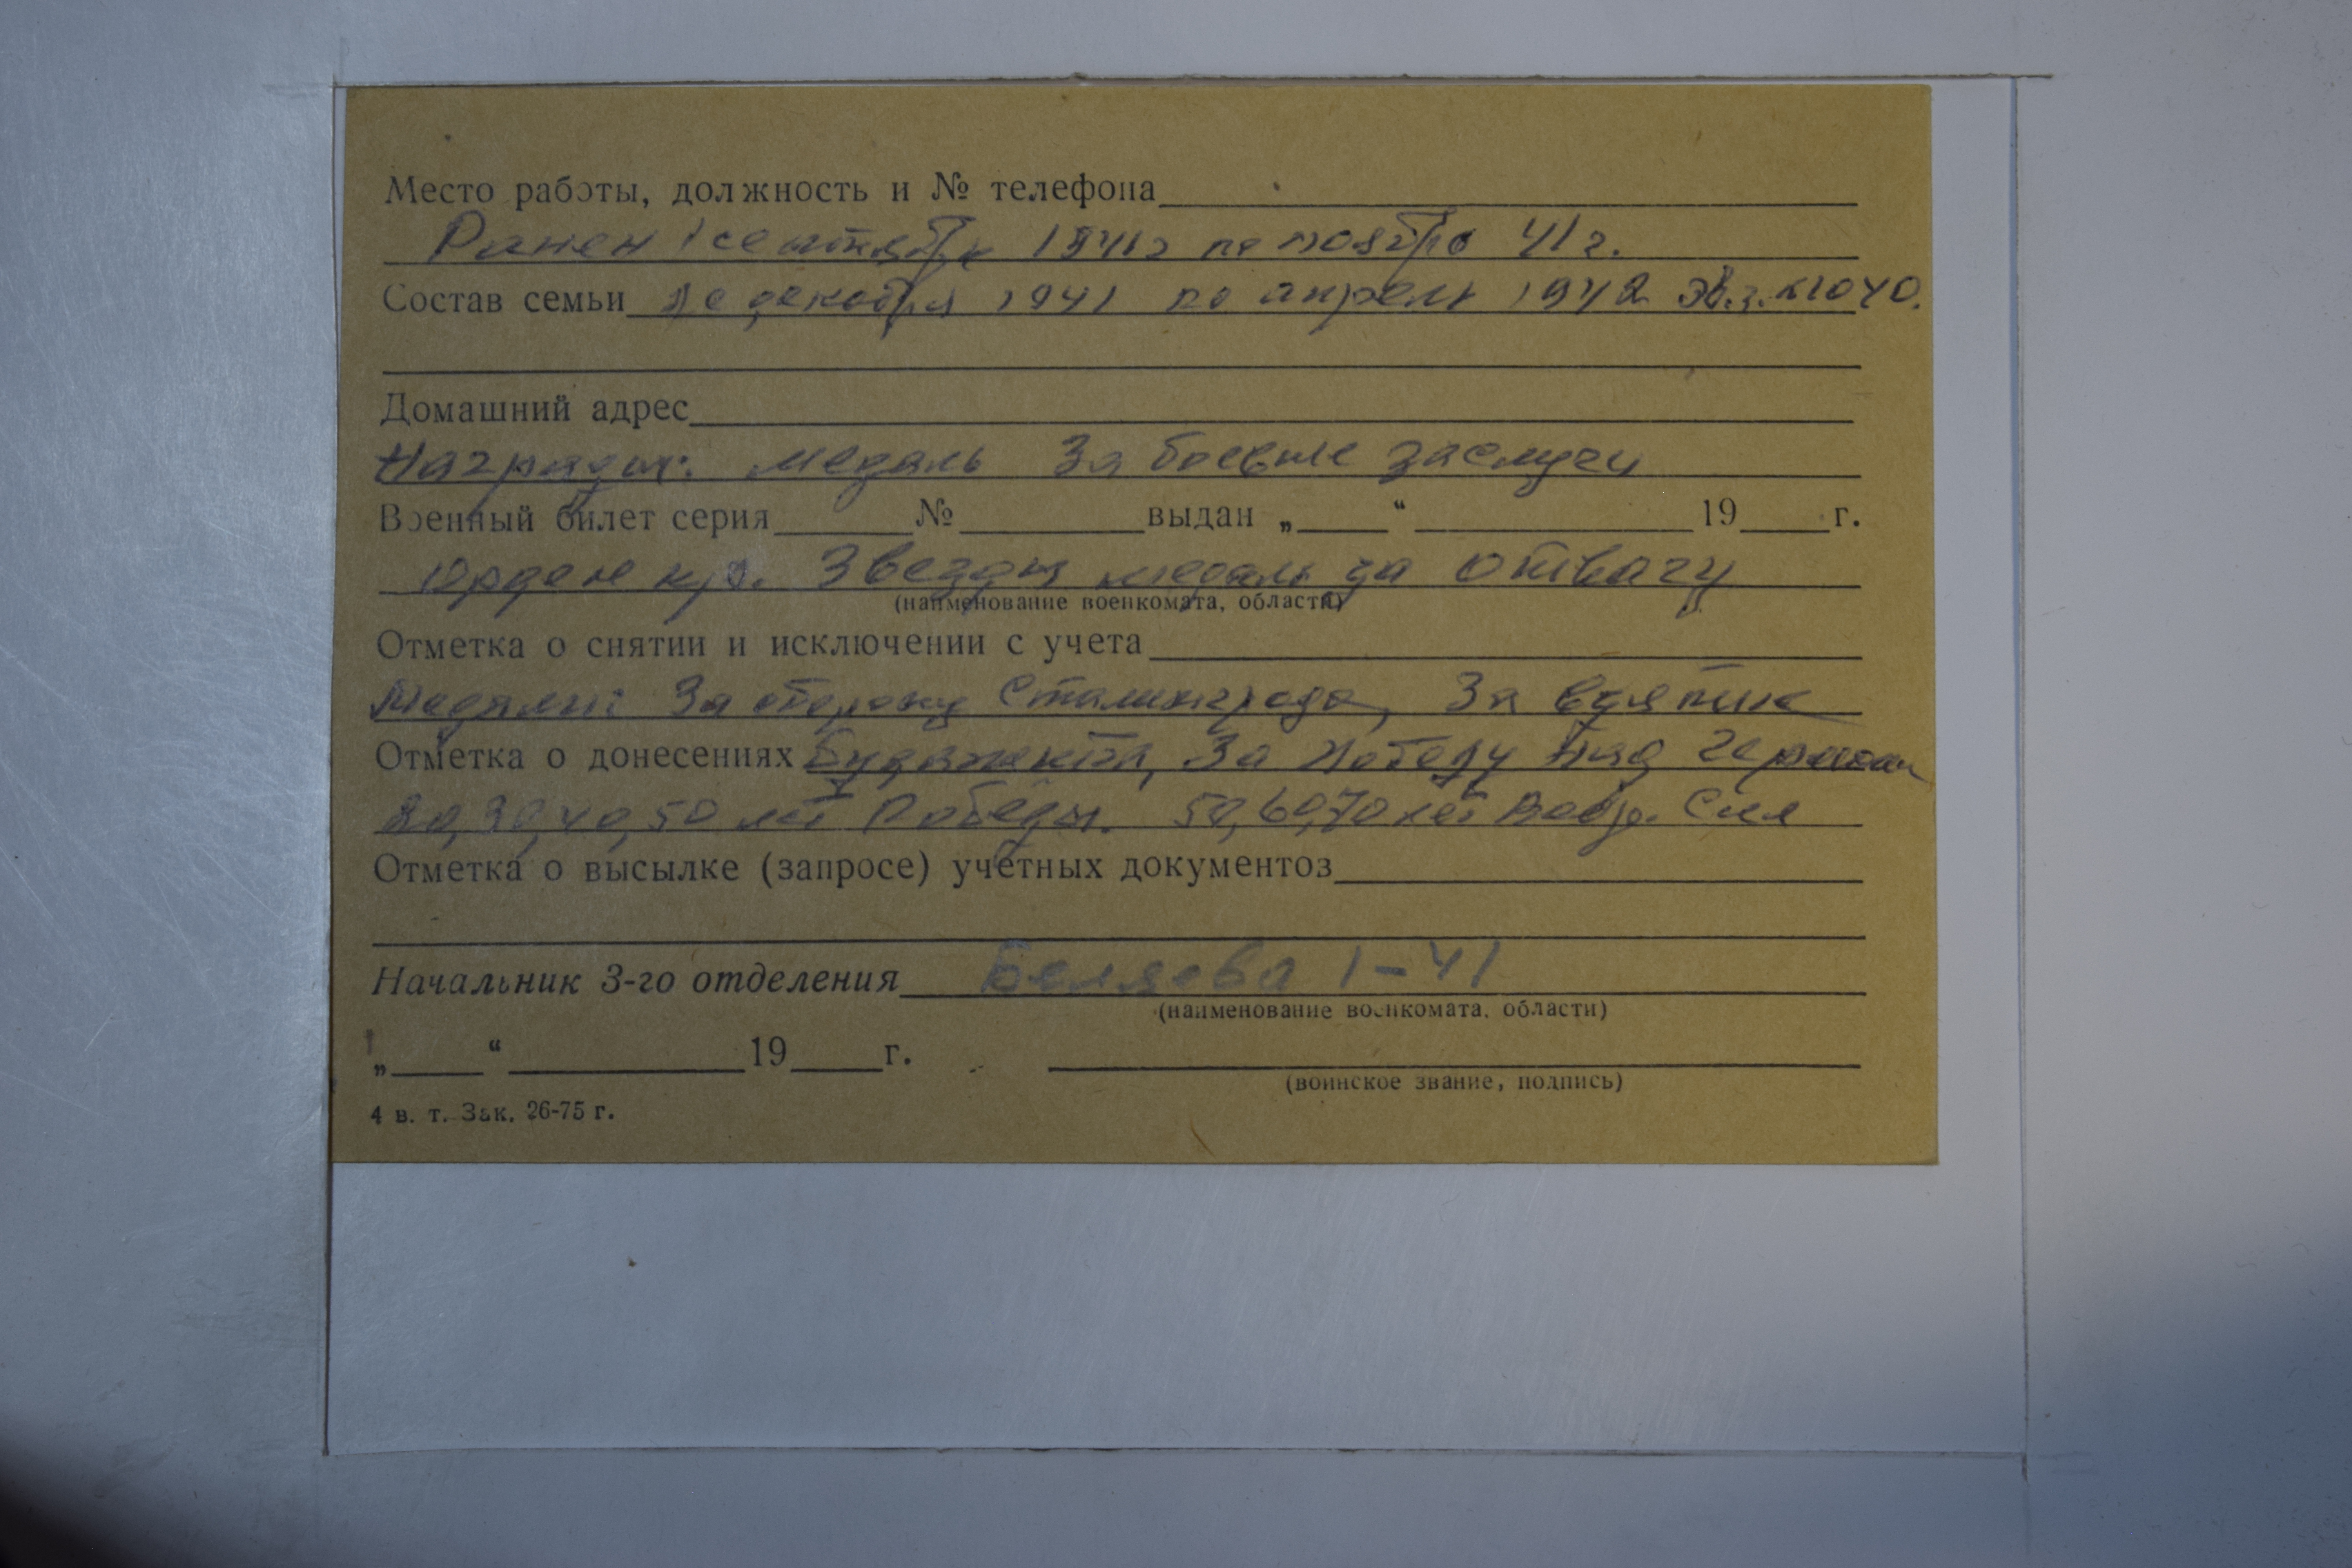 Место работы, должность и № телефона
Ранен 1 сентября 1941г по ноябрь 41 г.
Состав семьи декабря 1941 по апрель 1942 эв.г. №1040.
Домашний адрес
Награды: медаль За боевые заслуги
Военный билет серия № выдан „ “ 19 г.
Орден кр. Звезды медаль за отвагу
(наименование военкомата, области)
Отметка о снятии и исключении с учета
Медали: За оборону Сталинграда, За взятие
Отметка о донесениях Будапешта, За Победу над
20, 30, 40, 50 лет Победы. 50, 60, 70 лет Воор. Сил
Отметка о высылке (запросе) учетных документов
Начальник 3-го отделения Беляева 1-41
(наименование военкомата, области)
„ “ 19 г.
(воинское звание, подпись)
4 в. т. Зак. 26-75 г.